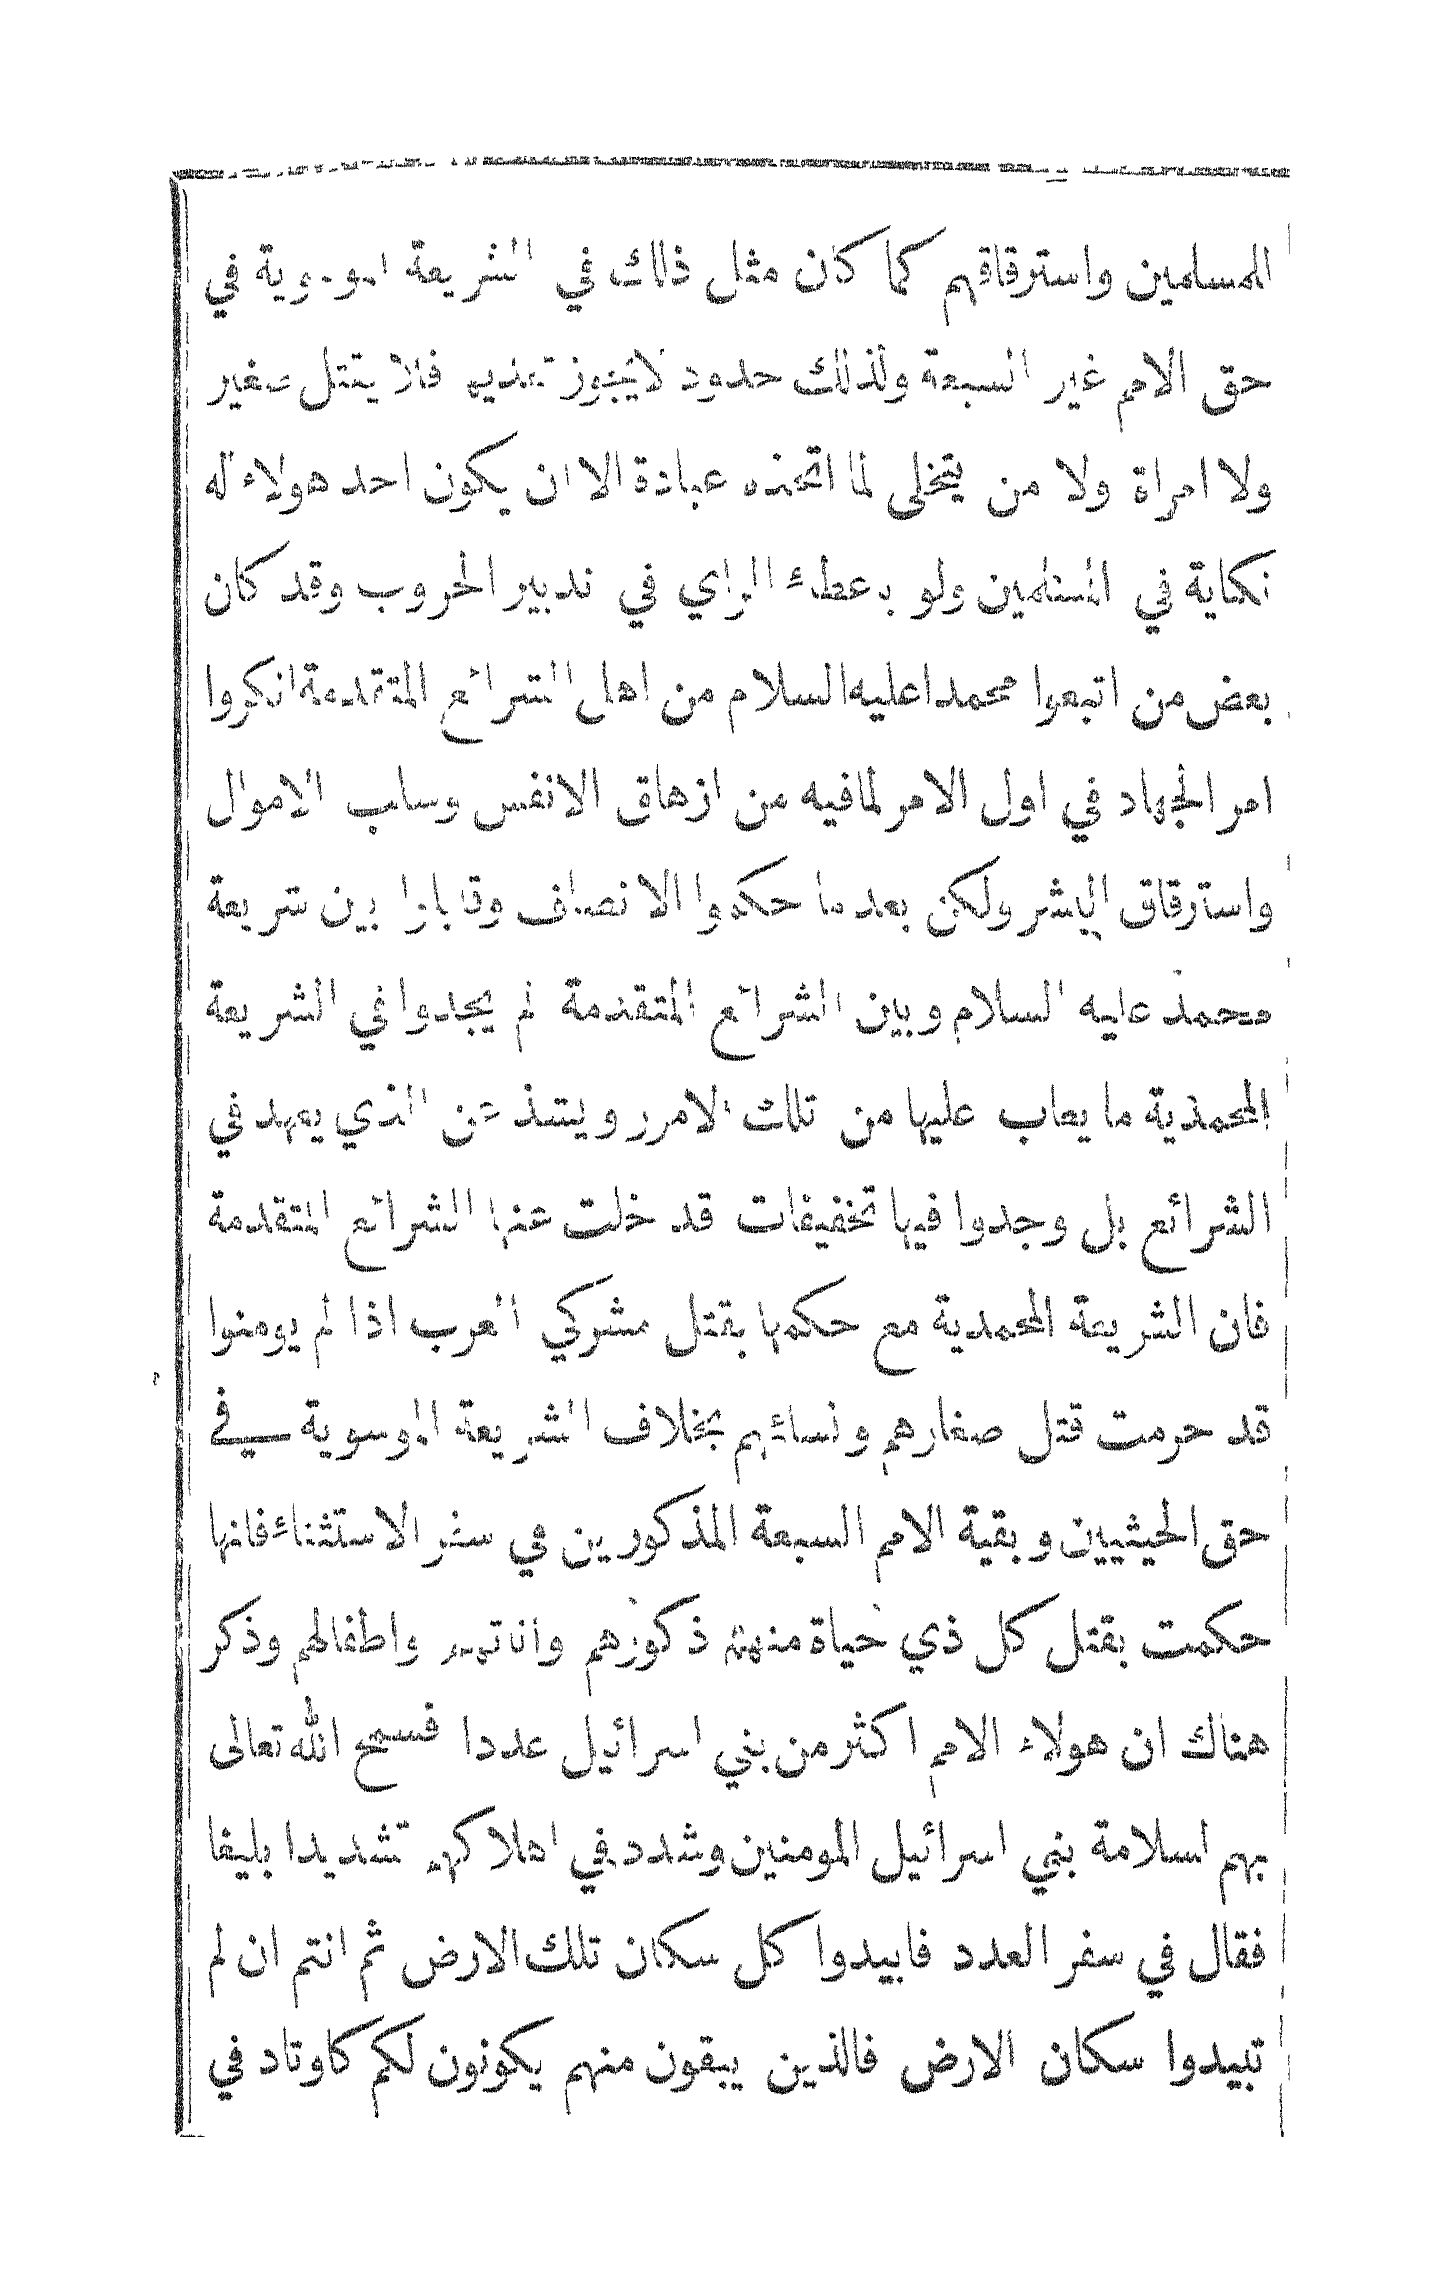 المسلمين واسترقاقهم كما كان مثل ذلك في الشريعة الموسوية في
حق الامم غير السبعة ولذلك حدود لايجوز تعديها فلا يقتل صغير
ولا امراة ولا من يتخلى لما اتخذه عبادة الا ان يكون احد هولاء له
نكاية في المسلمين ولو بـاعطاء الراي في تدبير الحروب وقد كان
بعض من اتبعوا محمدا عليه السلام من اهل الشرائع المتقدمة انكروا
امر الجهاد في اول الامر لمافيه من ازهاق الانفس وسلب الاموال
واسترقاق البشر ولكن بعد ما حكموا الانصاف وقابلوا بين شريعة
محمد عليه السلام وبين الشرائع المتقدمة لم يجدوا في الشريعة
المحمدية ما يعاب عليها من تلك الامور ويشذ عن الذي يعهد في
الشرائع بل وجدوا فيها تخفيفات قد خلت عنها الشرائع المتقدمة
فان الشريعة المحمدية مع حكمها بقتل مشركي العرب اذا لم يومنوا
قد حرمت قتل صغارهم ونسائهم بخلاف الشريعة الموسوية في
حق الحيثيين وبقية الامم السبعة المذكورين في سفر الاستثناء فانها
حكمت بقتل كل ذي حياة منهم ذكورهم واناثهم واطفالهم وذكر
هناك ان هولاء الامم اكثر من بني اسرائيل عددا فسمح الله تعالى
بهم لسلامة بني اسرائيل المومنين وشدد في اهلاكهم تشديدا بليغا
فقال في سفر العدد فابيدوا كل سكان تلك الارض ثم انتم ان لم
تبيدوا سكان الارض فالذين يبقون منهم يكونون لكم كاوتاد في